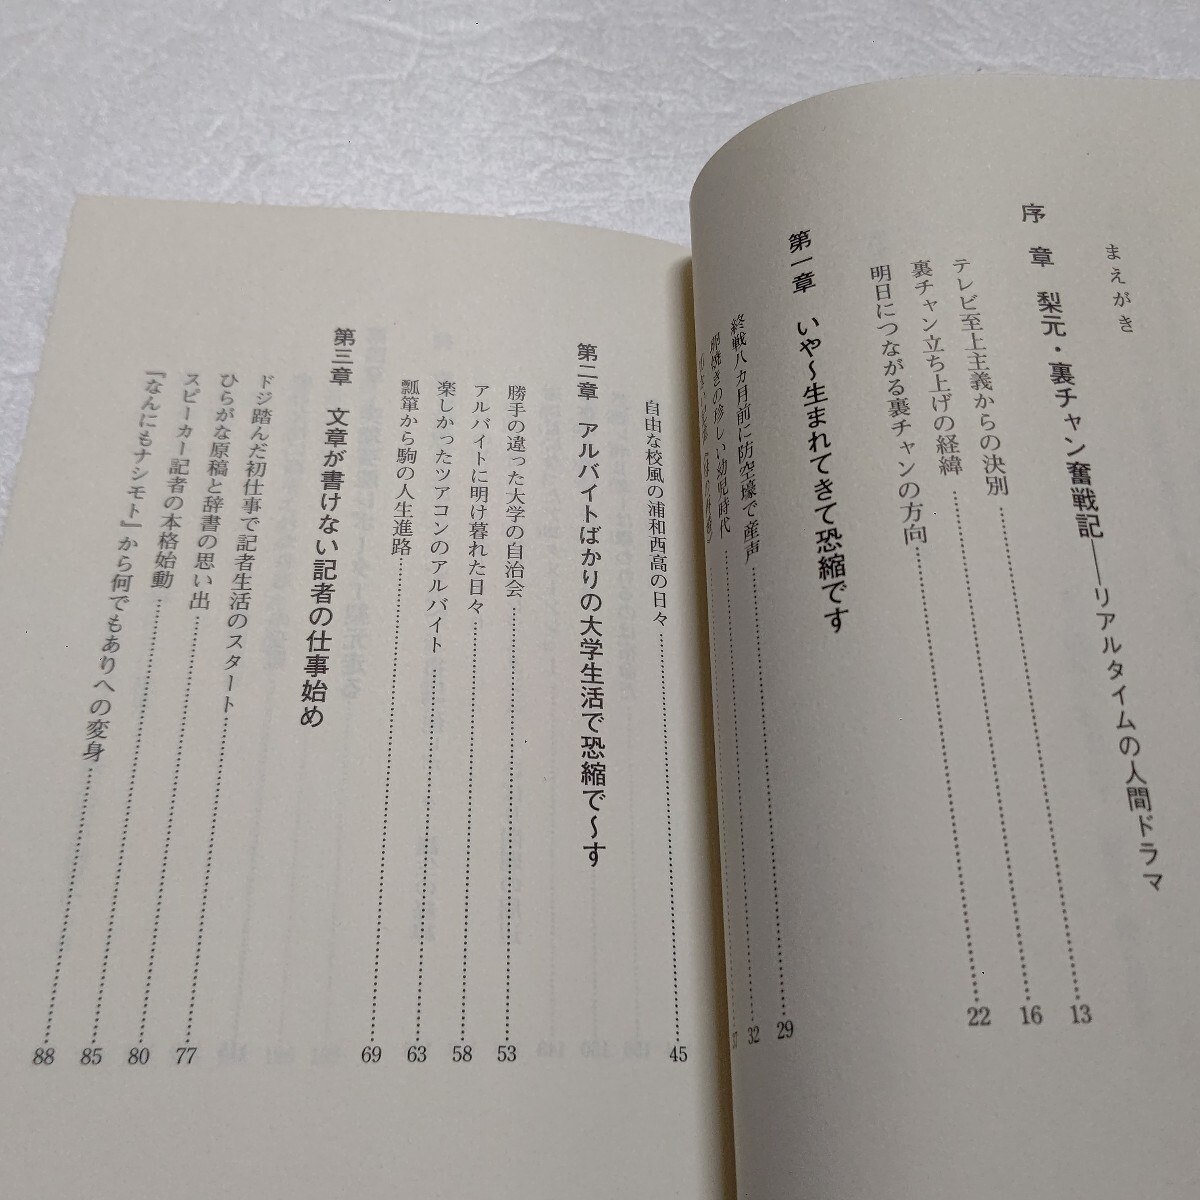 まえがき
序　章　梨元・裏チャン奮戦記――リアルタイムの人間ドラマ
テレビ至上主義からの決別 13
裏チャン立ち上げの経緯 16
明日につながる裏チャンの方向 22
第一章　いや～生まれてきて恐縮です
終戦八カ月前に防空壕で産声 29
卵焼きの珍しい幼児時代 32
37
自由な校風の浦和西高の日々 45
第二章　アルバイトばかりの大学生活で恐縮で～す
勝手の違った大学の自治会 53
アルバイトに明け暮れた日々 58
楽しかったツアコンのアルバイト 63
瓢箪から駒の人生進路 69
第三章　文章が書けない記者の仕事始め
ドジ踏んだ初仕事で記者生活のスタート 77
ひらがな原稿と辞書の思い出 80
スピーカー記者の本格始動 85
『なんにもナシモト』から何でもありへの変身 88